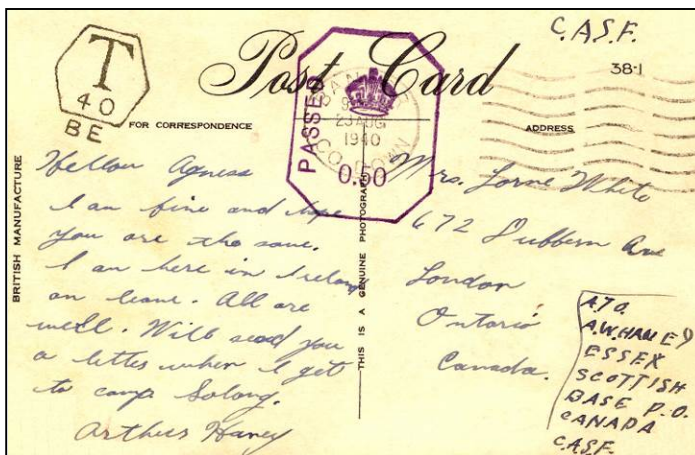 C.A.S.F.
38-1
T
40
BE
Post Card
PASSED
0.50
BANGOR
23 AUG
1940
CO. DOWN
FOR CORRESPONDENCE
ADDRESS
BRITISH MANUFACTURE
THIS IS A GENUINE PHOTOGRAPH
Hellow Agness
I am fine and hope
you are the same.
I am here in Ireland
on leave. All are
well. Will send you
a letter when I get
to camp Solong.
Arthur Haney
Mrs. Lorne White
672 Dufferin Ave
London
Ontario
Canada.
A.W. HANEY
ESSEX
SCOTTISH
BASE P.O.
CANADA
C.A.S.F.